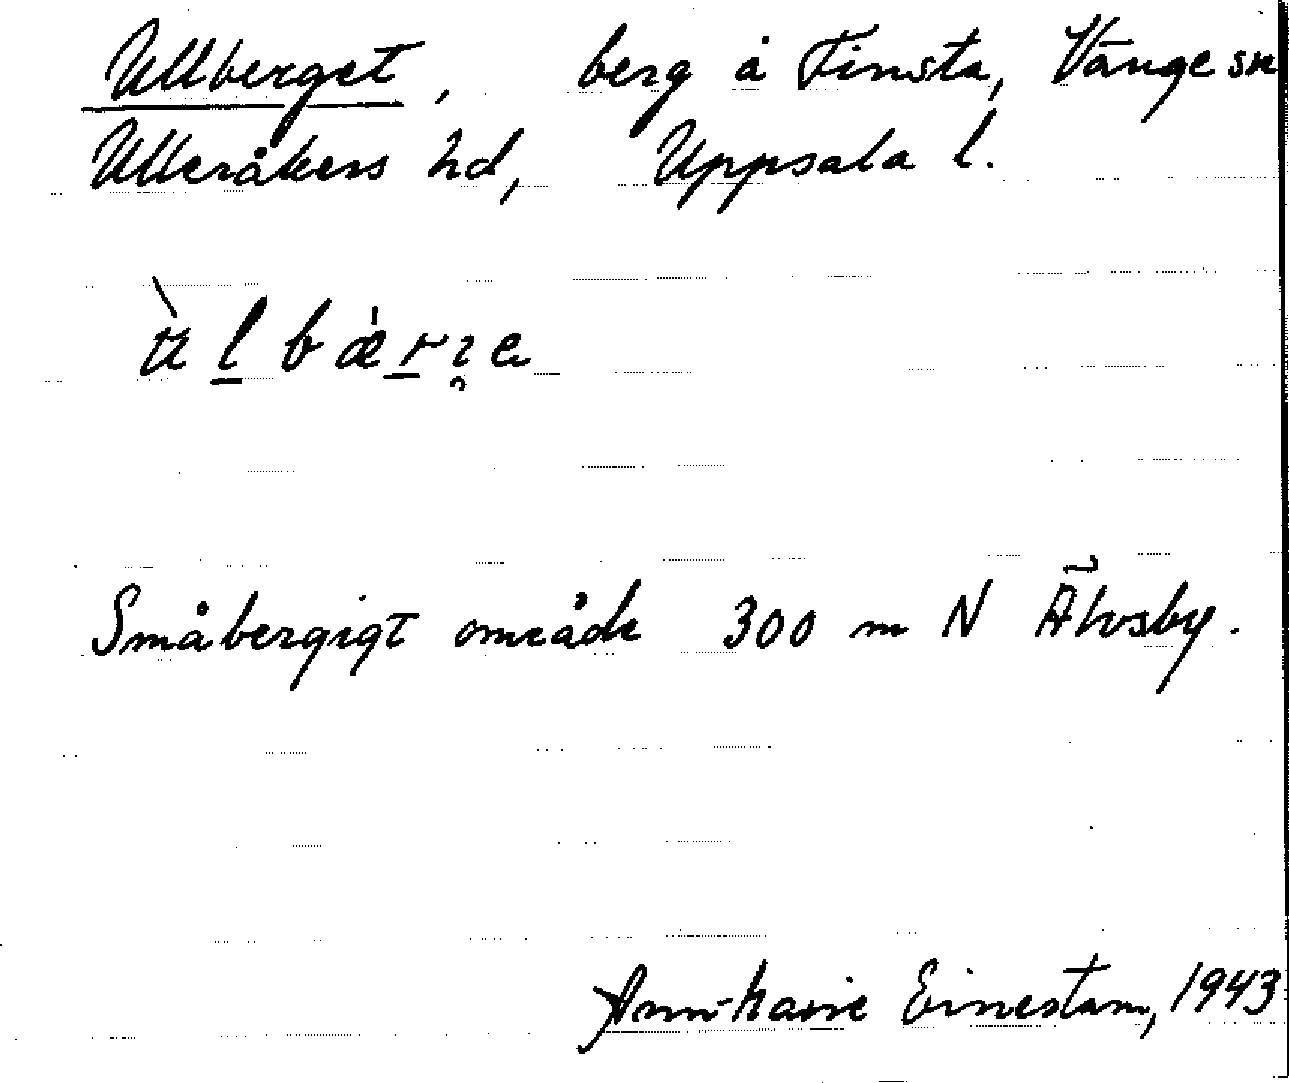 Ullberget, berg å Finsta, Vänge sn
Ulleråkers hd, Uppsala l.
Småbergigt område 300 m N Älvsby.
Ann-Marie Einestam, 1943